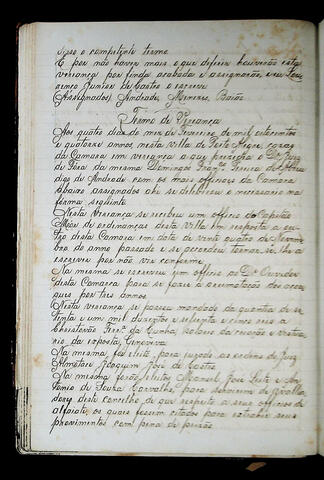 disso o competente termo
E por não haver mais o que deferir houverão esta
vereança por finda acabada e assignarão, e eu Lou
renço Junior de Castro o escrevi
(Assignados) Andrade, Menezes, Barão
Termo de Vereança
Aos quatro dias do mez de Fevereiro de mil oitocentos
e quatorze annos, nesta villa de Porto Alegre, casas
da Camara em vereança a que prezedio o Dr Juiz
de Fóra da mesma Domingos Franco Pereira de
dias de Andrade, com os mais officiaes da Camara
abaixo assignados ahi se deliberou o necessario na
forma seguinte
Nesta vereança se recebeu um officio do Capitão
Mór de ordinanças desta villa em resposta a ou
tro desta Camara em data de vinte quatro de
bro do anno passado e se procedeu tornar se lhe a
escrever por não vir conforme
Na mesma se escreveu um officio ao Dr Ouvidor
desta Comarca para se fazer a arrematação dos aça
gues por tres annos
Nesta vereança se passou mandado da quantia de se
tenta e um mil duzentos e sessenta e cinco reis a
Christovão Ferra da Cunha, salario da creação e vestua
rio da exposta, Genoveva
Na mesma foi eleito para jurado as ordens do Juiz
Almotacé Joaquim José de Castro
Na mesma forão eleitos Manoel José Leite e An
tonio de Souza Carvalho para servirem de Avalia
dores deste concelho do que respeita a seus officios de
alfaiate, os quaes fossem citados para extrahir seus
provimentos com pena de prizão